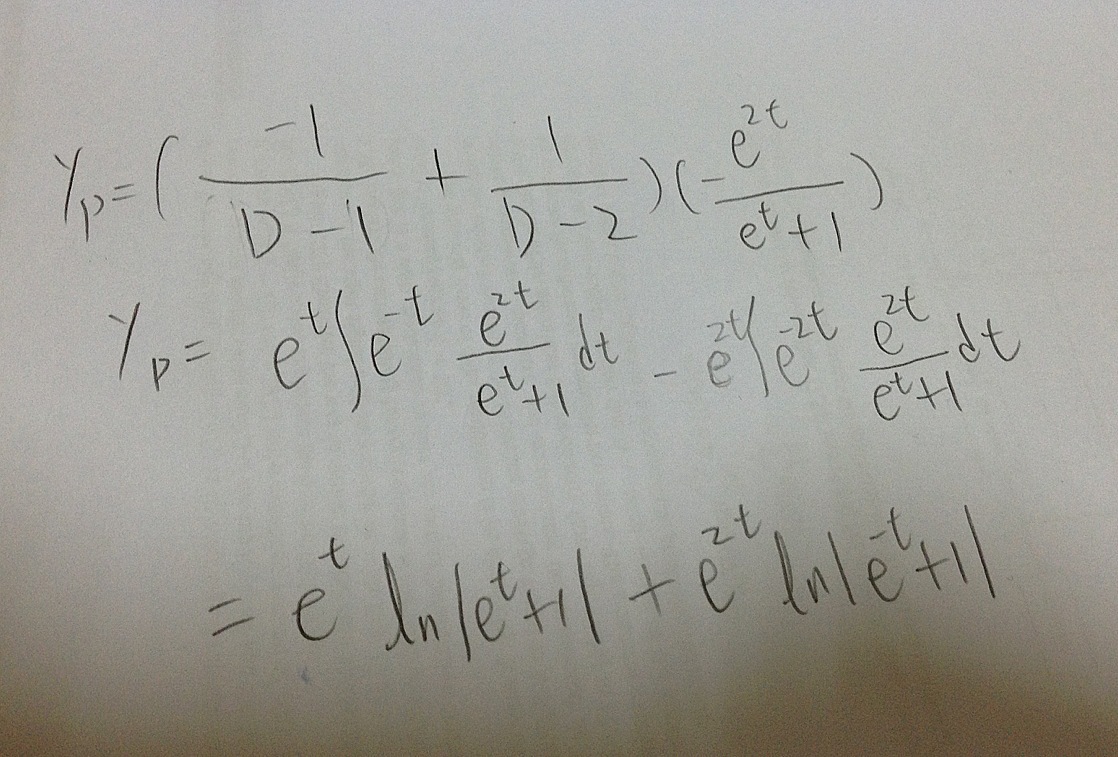 Yp = ( -1/(D-1) + 1/(D-2) )( -e^{2t}/(e^t+1) )
Yp = e^t ∫ e^{-t} e^{2t}/(e^t+1) dt - e^{2t} ∫ e^{-2t} e^{2t}/(e^t+1) dt
= e^t ln|e^t+1| + e^{2t} ln|e^{-t}+1|